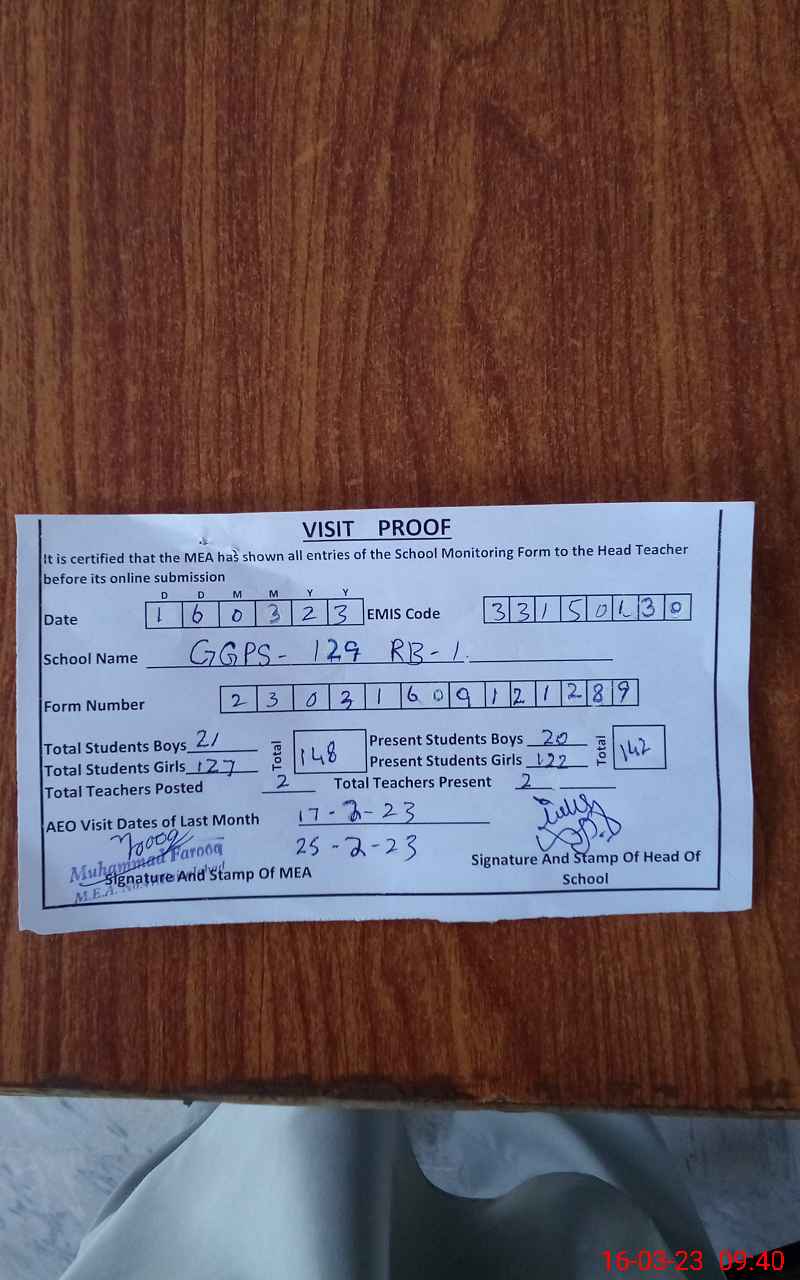 VISIT PROOF
It is certified that the MEA has shown all entries of the School Monitoring Form to the Head Teacher
before its online submission
D D M M Y Y
Date 1 6 0 3 2 3 EMIS Code 3 3 1 5 0 1 3 0
School Name GGPS- 129 RB-1.
Form Number 2 3 0 3 1 6 0 9 1 2 1 2 8 9
Total Students Boys 21 Total 148 Present Students Boys 20 Total 142
Total Students Girls 127 Present Students Girls 122
Total Teachers Posted 2 Total Teachers Present 2
AEO Visit Dates of Last Month 17-2-23
25-2-23
Muhammad Farooq
Signature And Stamp Of MEA
M.E.A.
Signature And Stamp Of Head Of
School
16-03-23 09:40